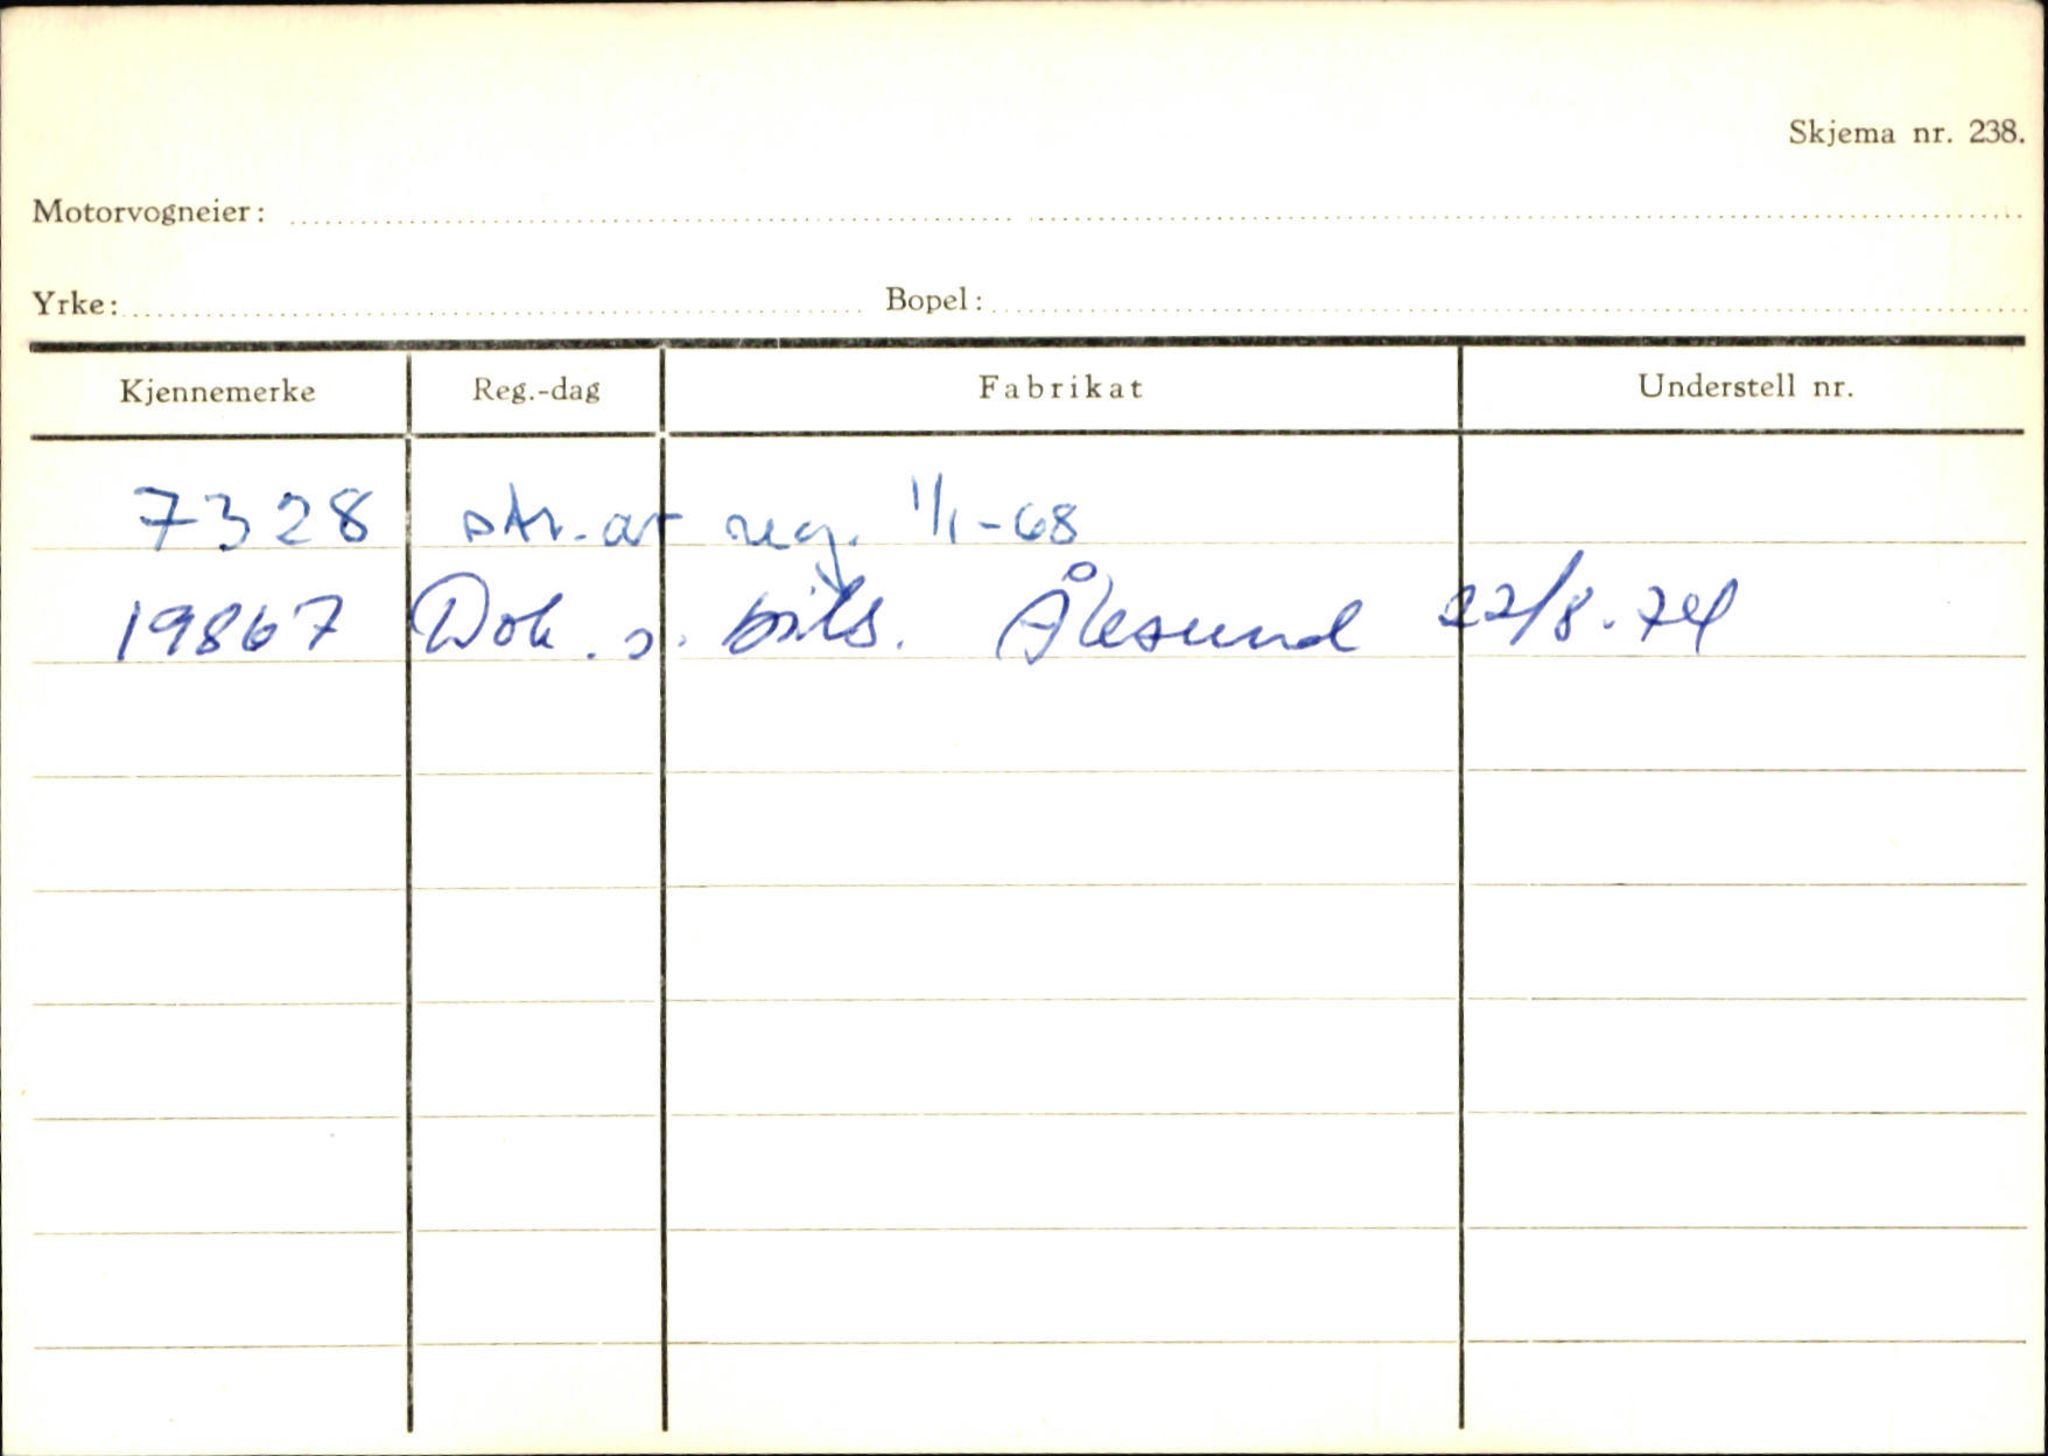 Skjema nr. 238.
Motorvogneier:
Yrke: Bopel:
Kjennemerke Reg.-dag Fabrikat Understell nr.
7328 str. av reg. 1/1-68
19867 Dok. s. bils. Ålesund 22/8.74